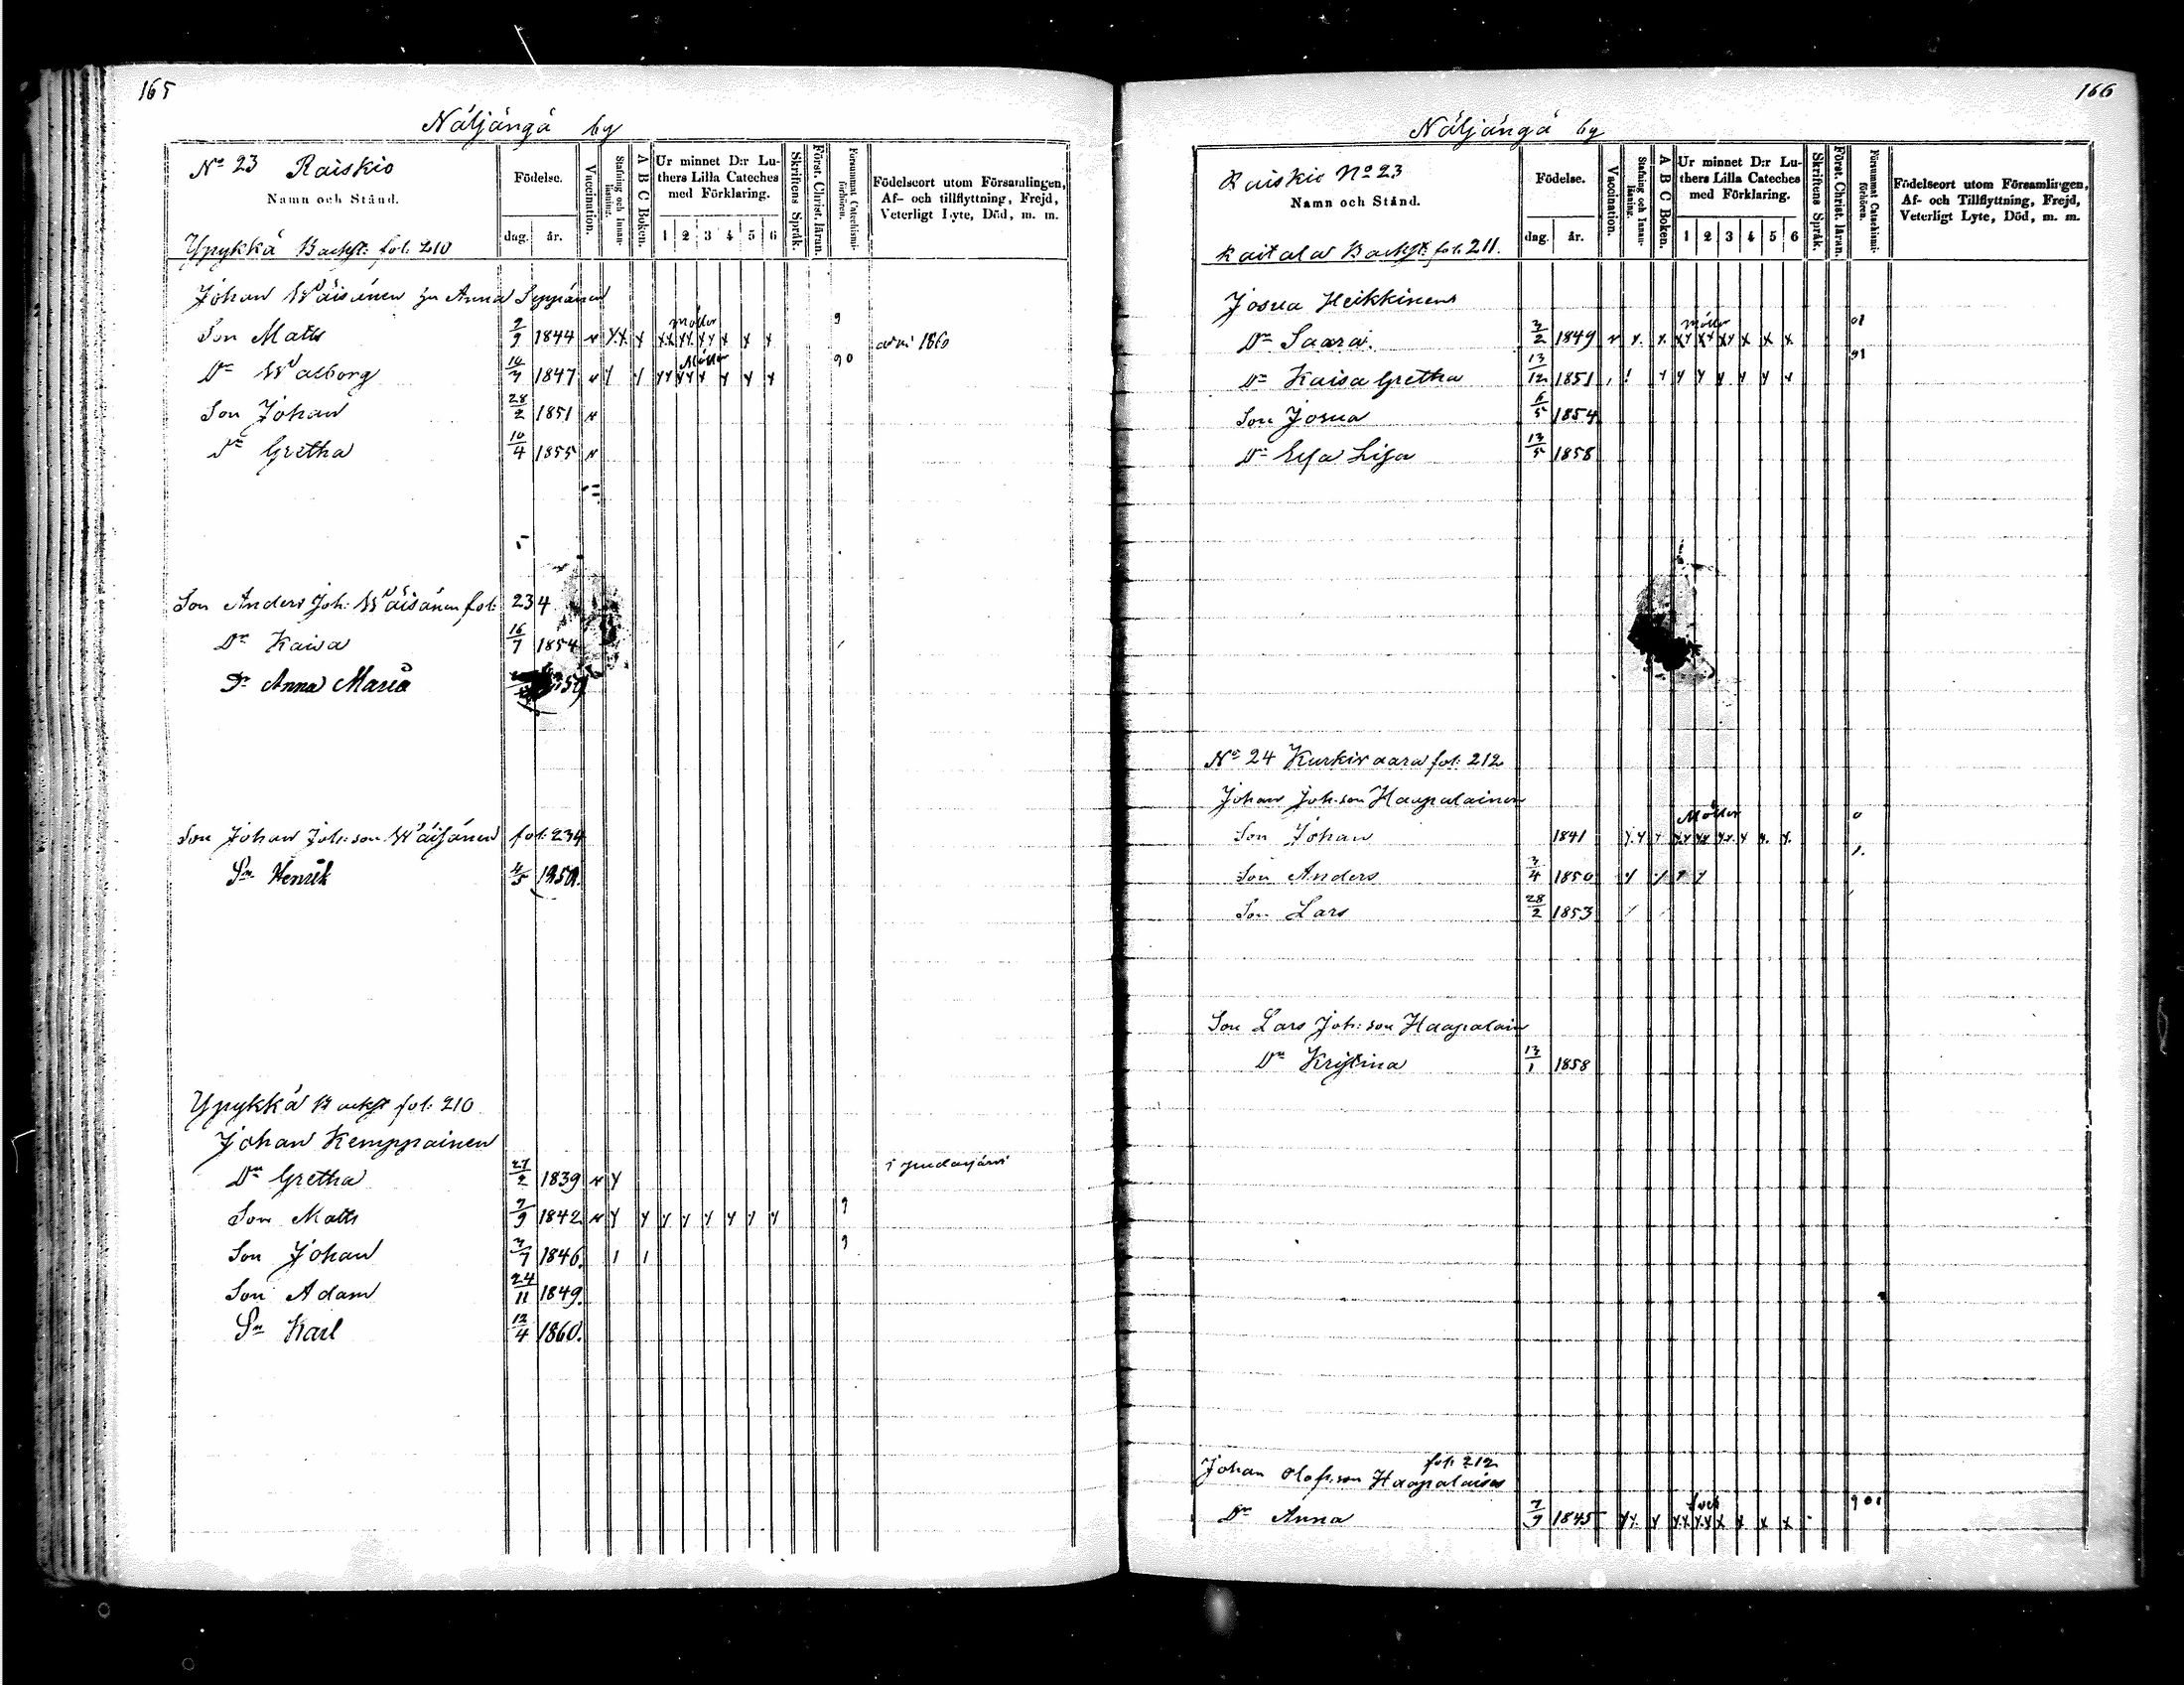 165
Näljängä by
No 23 Raiskio
Namn och Stånd.
Födelse.
dag. år.
Vaccination.
Stafning och Innanläsning.
A B C Boken.
Ur minnet D:r Lu-
thers Lilla Cateches
med Förklaring.
1 2 3 4 5 6
Skriftens Språk.
Först. Christ. läran.
Försummat Catechismi-
förhören.
Födelseort utom Församlingen,
Af- och tillflyttning, Frejd,
Veterligt Lyte, Död, m. m.
Ypykkä Backst: fol. 210
Johan Wäisänen hu Anna Seppänen
Son Matts 7/9 1844 1860
Dr Walborg 1847
Son Johan 28/2 1851
Dr Gretha 10/4 1855
Son Anders Joh: Wäisänen fol: 234
Dr Kaisa 16/7 1854
Dr Anna Maria
Son Johan Joh:son Wäisänen fol: 234
Sn Henrik
Ypykkä Backst fol: 210
Johan Kemppainen
Dr Gretha 27/2 1839 i Pudasjärvi
Son Matts 7/9 1842
Son Johan 1846
Son Adam 24/11 1849
Sn Karl 12/4 1860
166
Näljängä by
Raiskio No 23
Namn och Stånd.
Födelse.
dag. år.
Vaccination.
Stafning och Innanläsning.
A B C Boken.
Ur minnet D:r Lu-
thers Lilla Cateches
med Förklaring.
1 2 3 4 5 6
Skriftens Språk.
Först. Christ. läran.
Försummat Catechismi-
förhören.
Födelseort utom Församlingen,
Af- och Tillflyttning, Frejd,
Veterligt Lyte, Död, m. m.
Kaitala Backst: fol. 211.
Josua Heikkinen
Dr Saara 3/2 1849
Dr Kaisa Gretha 13/12 1851
Son Josua 6/5 1854
Dr Eefa Lisa 13/5 1858
No 24 Kurkivaara fol: 212
Johan Joh:son Haapalainen
Son Johan 1841
Son Anders 3/4 1850
Son Lars 28/2 1853
Son Lars Joh:son Haapalain
Dr Kristina 13/1 1858
fol: 212
Johan Olofsson Haapalainen
Dr Anna 7/9 1845